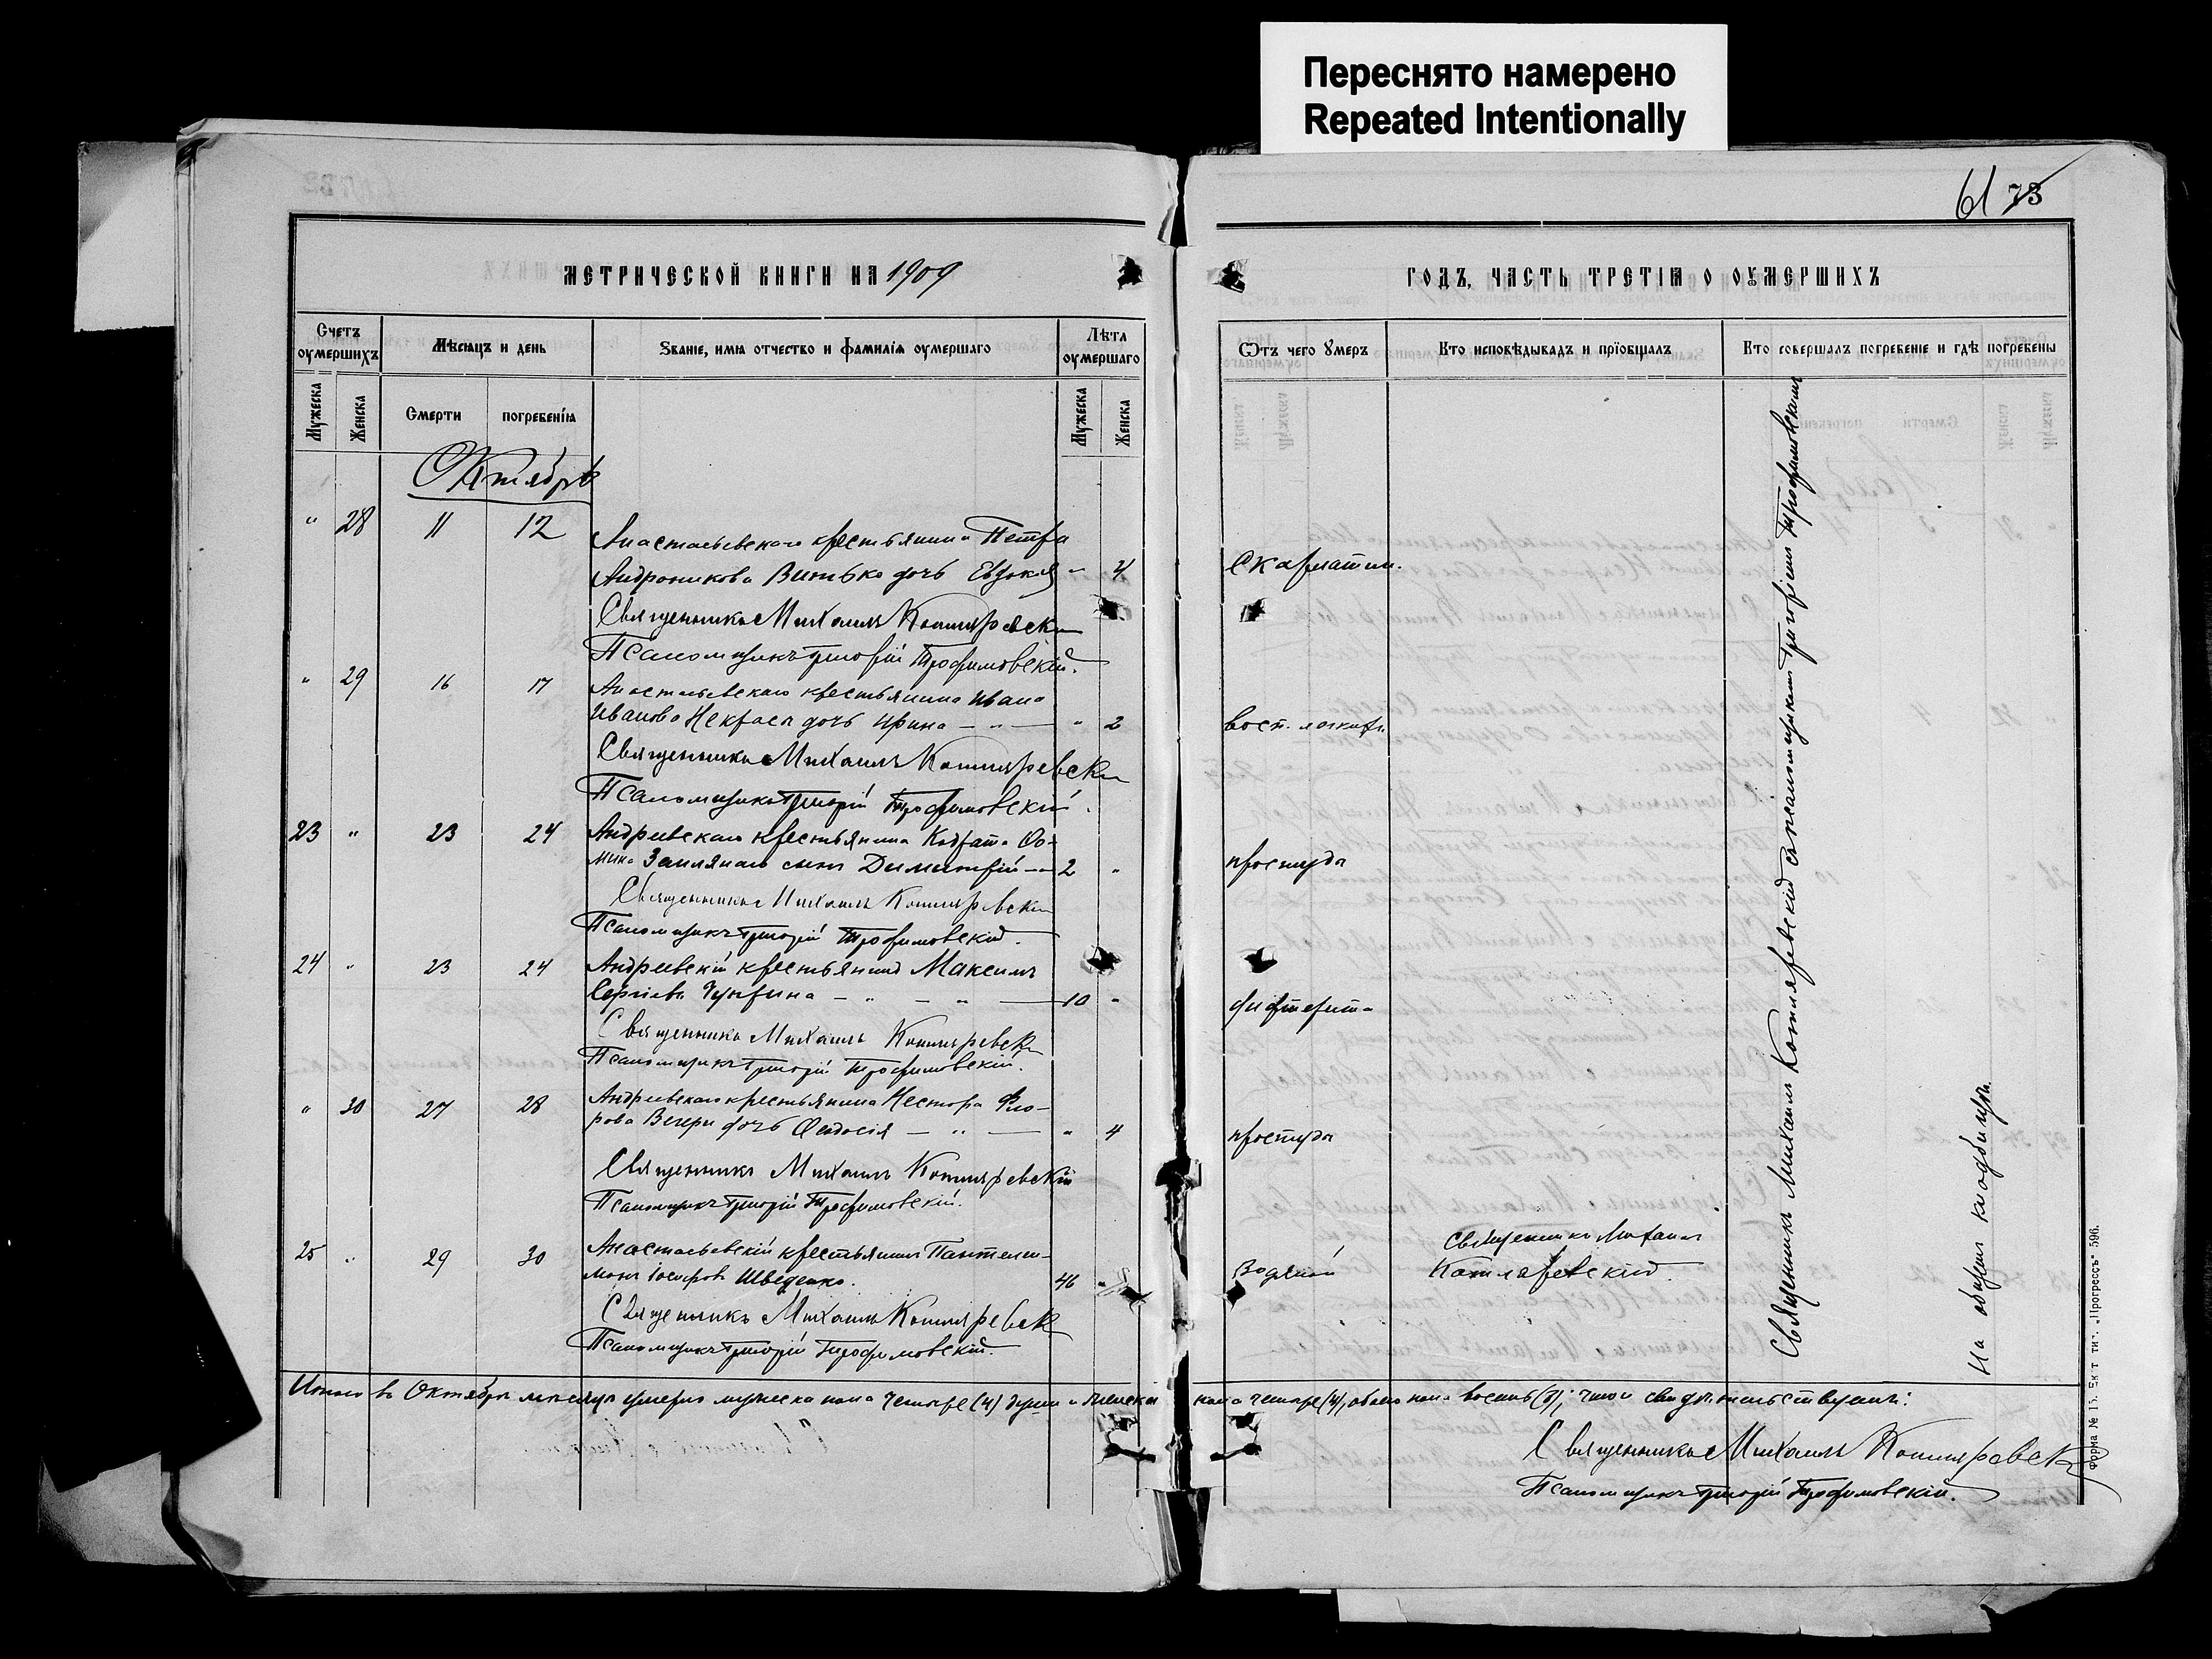 Переснято намерено
Repeated Intentionally
61 73
МЕТРИЧЕСКОЙ КНИГИ НА 1909
ГОДЪ, ЧАСТЬ ТРЕТІѦ О ОУМЕРШИХЪ
Счетъ оумершихъ
Мѣсяцъ и день
Званіе, имя отчество и фамилія оумершаго
Лѣта оумершаго
Ѿтъ чего Ꙋмеръ
Кто исповѣдывалъ и пріобщалъ
Кто совершалъ погребеніе и гдѣ погребены
Мужеска
Женска
Смерти
погребенія
Мужеска
Женска
Октябрь
" 28 11 12 Анастасьевскаго крестьянина Петра
Андроникова Витько дочь Евдокія " 4 скарлатин.
Священникъ Михаилъ Котляревскі
Псаломщикъ Григорій Трофимовскій.
" 29 16 17 Анастасьевскаго крестьянина Ивана
Иванова Некраса дочь Ирина — " — " 2 восп. легкихъ
Священникъ Михаилъ Котляревскі
Псаломщикъ Григорій Трофимовскій.
23 " 23 24 Андреевскаго крестьянина Кодрата Ѳо-
мина сынъ Димитрій — 2 " простуды
Священникъ Михаилъ Котляревскі
Псаломщикъ Григорій Трофимовскій.
24 " 23 24 Андреевскій крестьянинъ Максимъ
Сергіевъ — " — " — 10 " дифтерита
Священникъ Михаилъ Котляревскі
Псаломщикъ Григорій Трофимовскій.
" 30 27 28 Андреевскаго крестьянина Нестора Фло-
рова Вечери дочь Ѳеодосія — " — " 4 простуды
Священникъ Михаилъ Котляревскій
Псаломщикъ Григорій Трофимовскій.
25 " 29 30 Анастасьевскій крестьянинъ Пантелеи-
монъ Іосифовъ Шведенко. 46 " водяной
Священникъ Михаилъ
Котляревскій.
Священникъ Михаилъ Котляревск
Псаломщикъ Григорій Трофимовскій.
Священникъ Михаилъ Котляревскій съ псаломщикомъ Григоріемъ Трофимовскимъ
На общемъ кладбищѣ.
Итого въ Октябрѣ мѣсяцѣ умерло мужеска пола четыре (4) души и женска пола четыре (4), обоего пола восемь (8); что и свидѣтельствуемъ:
Священникъ Михаилъ Котляревск
Псаломщикъ Григорій Трофимовскій.
Форма № 15. Ек-т тип. „Прогрессъ" 596.